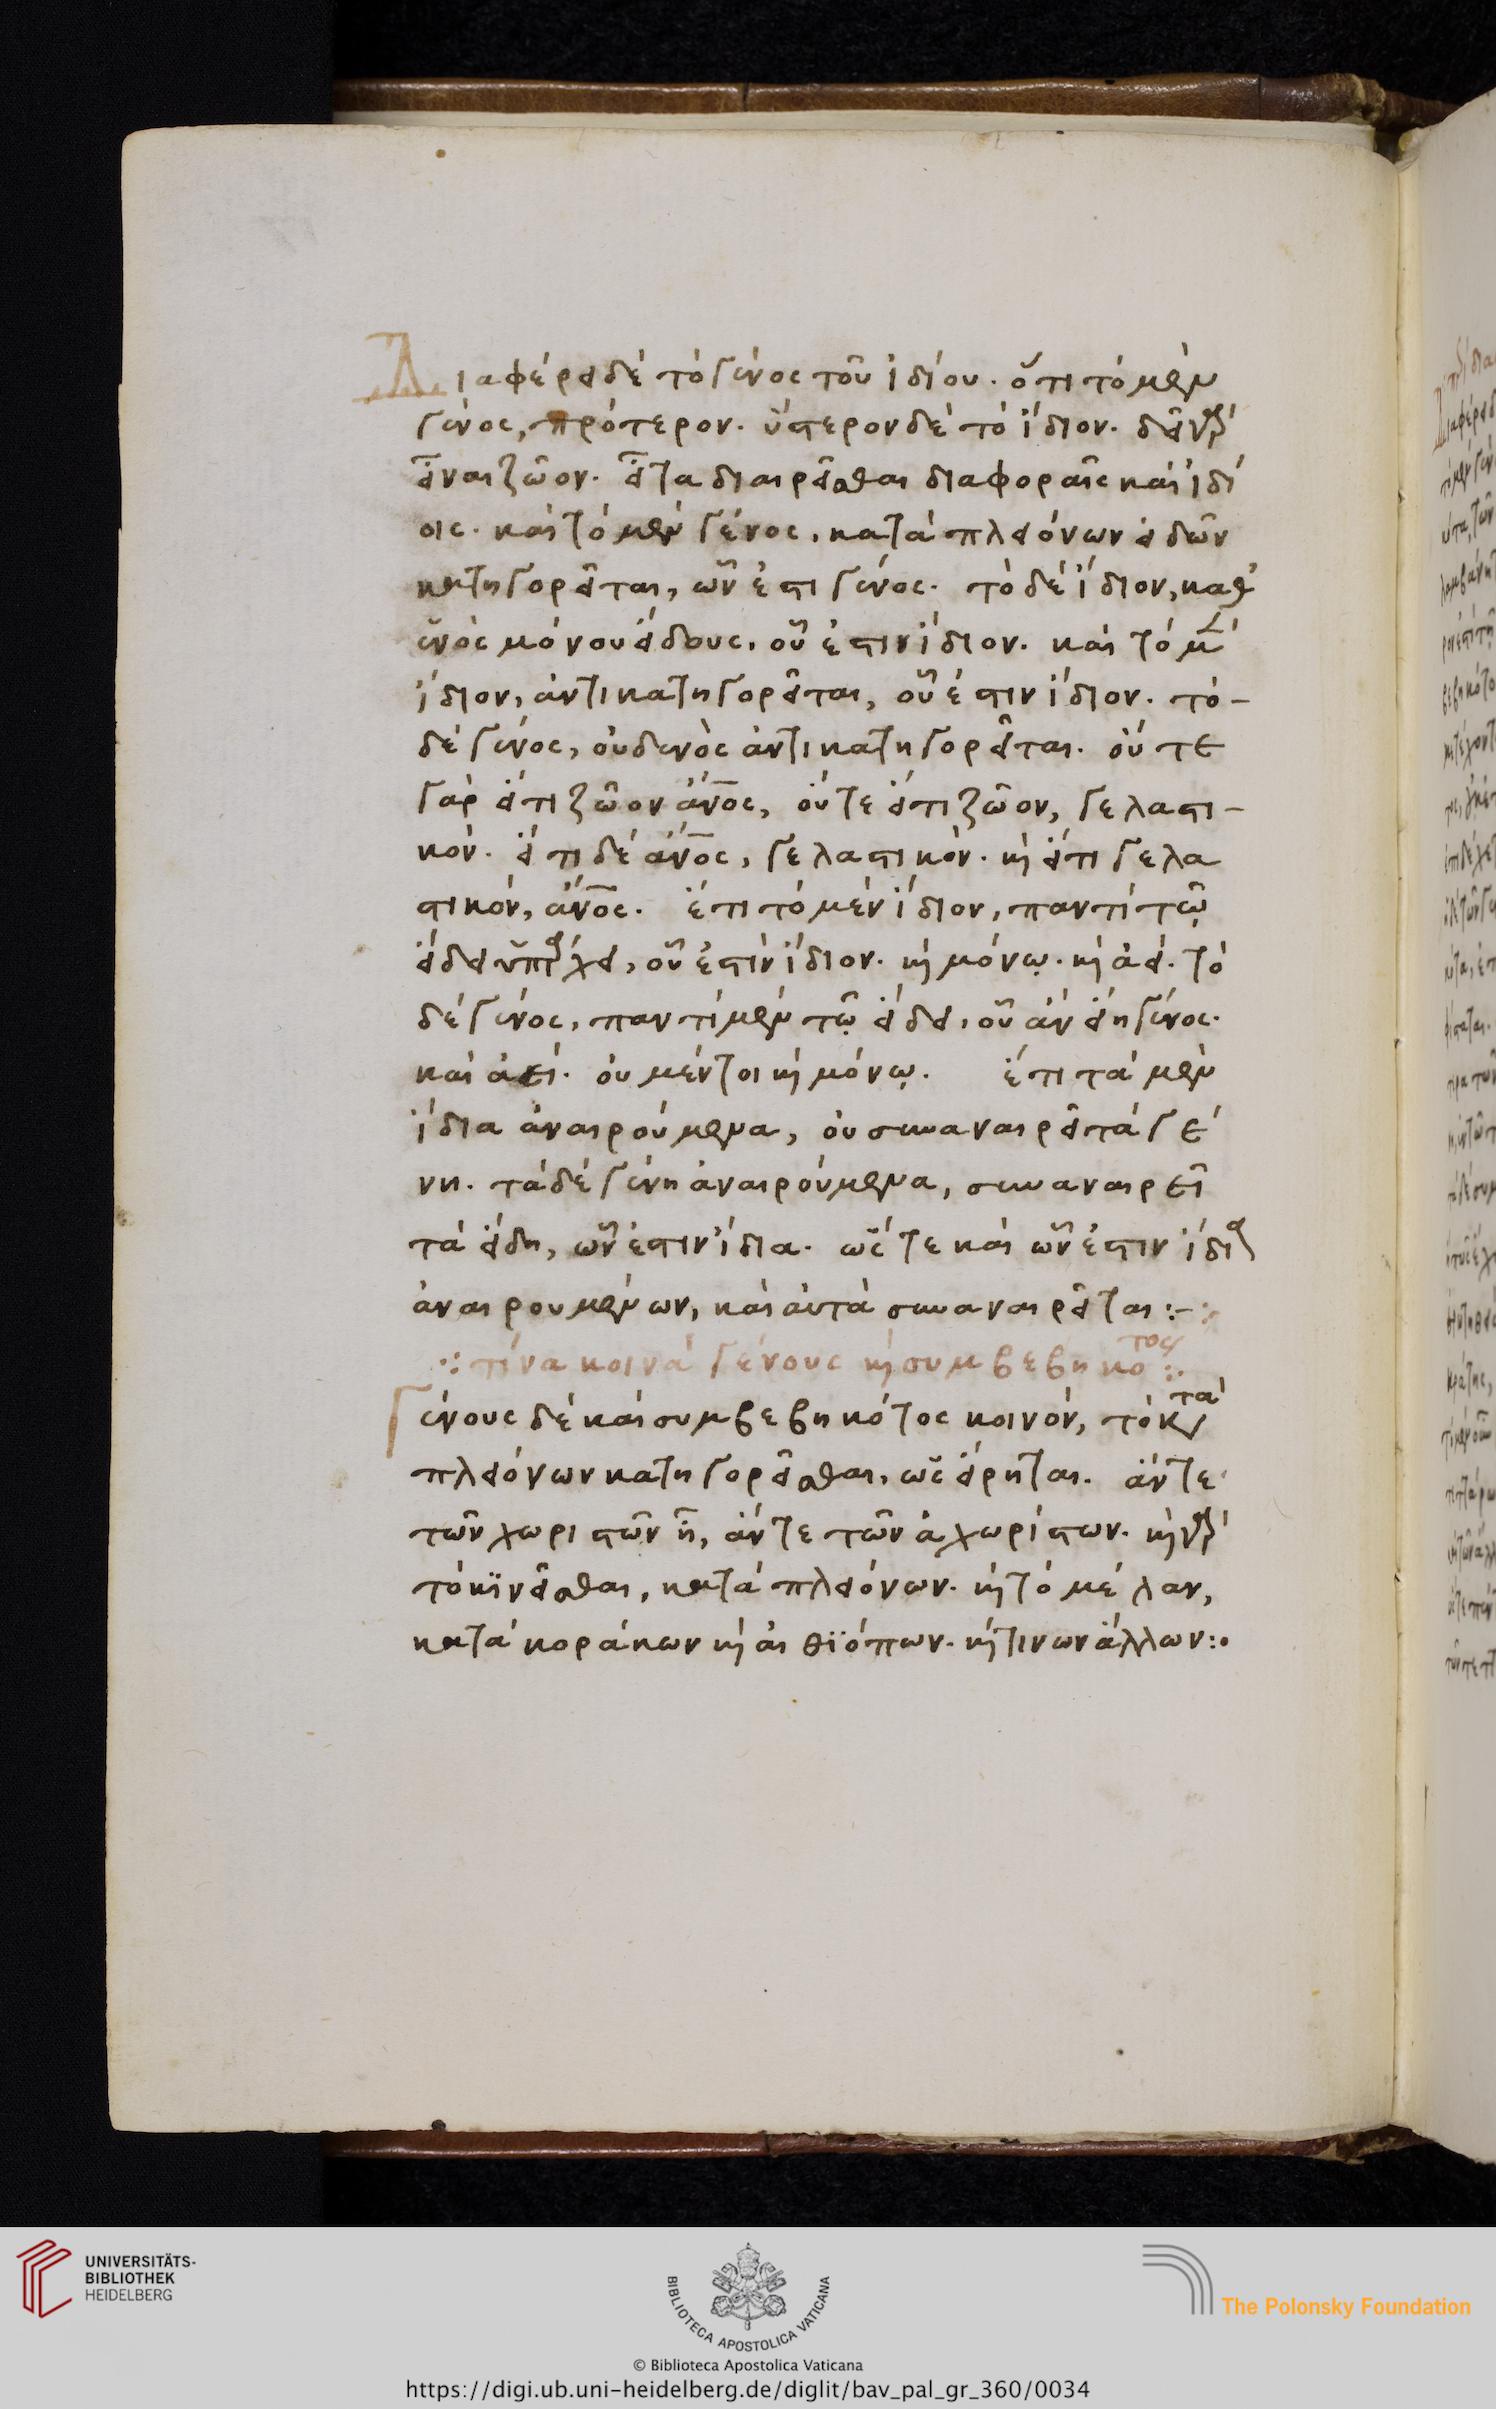 Διαφέρει δὲ τὸ γένος τοῦ ἰδίου. ὅτι τὸ μὲν
γένος, πρότερον. ὕστερον δὲ τὸ ἴδιον. δεῖ γὰρ
εἶναι ζῶον. εἶτα διαιρεῖσθαι διαφοραῖς καὶ ἰδί
οις. καὶ τὸ μὲν γένος, κατὰ πλειόνων εἰδῶν
κατηγορεῖται, ὧν ἐστι γένος. τὸ δὲ ἴδιον, καθ'
ἑνὸς μόνου εἴδους, οὗ ἐστιν ἴδιον. καὶ τὸ μὲν
ἴδιον, ἀντικατηγορεῖται, οὗ ἐστιν ἴδιον. τὸ-
δὲ γένος, οὐδενὸς ἀντικατηγορεῖται. οὔτε
γὰρ εἴ τι ζῶον ἄνος, οὔτε εἴ τι ζῶον, γελαστι-
κόν. εἴ τι δὲ ἄνος, γελαστικόν. κὶ εἴ τι γελα
στικόν, ἄνος. ἔτι τὸ μὲν ἴδιον, παντὶ τῷ
εἴδει ὑπάρχει, οὗ ἐστὶν ἴδιον. κὶ μόνῳ. κὶ ἀεί. τὸ
δὲ γένος, παντὶ μὲν τῷ εἴδει, οὗ ἂν εἴη γένος.
καὶ ἀεί. οὐ μέντοι κὶ μόνῳ. ἔτι τὰ μὲν
ἴδια ἀναιρούμενα, οὐ συναναιρεῖ τὰ γέ
νη. τὰ δὲ γένη ἀναιρούμενα, συναναιρεῖ
τὰ εἴδη, ὧν ἐστιν ἴδια. ὥστε καὶ ὧν ἐστιν ἴδια
ἀναιρουμένων, καὶ αὐτὰ συναναιρεῖται :-
∴ τίνα κοινὰ γένους κὶ συμβεβηκότος ∴
Γένους δὲ καὶ συμβεβηκότος κοινόν, τὸ κατὰ
πλειόνων κατηγορεῖσθαι, ὡς εἴρηται. ἄν τε
τῶν χωριστῶν ᾖ, ἄν τε τῶν ἀχωρίστων. κὶ γὰρ
τὸ κϊνεῖσθαι, κατὰ πλειόνων. κὶ τὸ μέλαν,
κατὰ κοράκων κὶ αἰθϊόπων. κὶ τινων ἄλλων :.
UNIVERSITÄTS-
BIBLIOTHEK
HEIDELBERG
BIBLIOTECA APOSTOLICA VATICANA
The Polonsky Foundation
© Biblioteca Apostolica Vaticana
https://digi.ub.uni-heidelberg.de/diglit/bav_pal_gr_360/0034